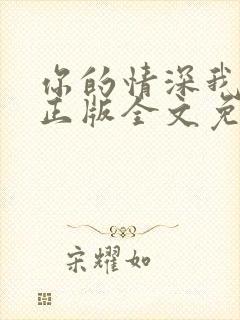 你的情深我
正版全文免
宋耀如